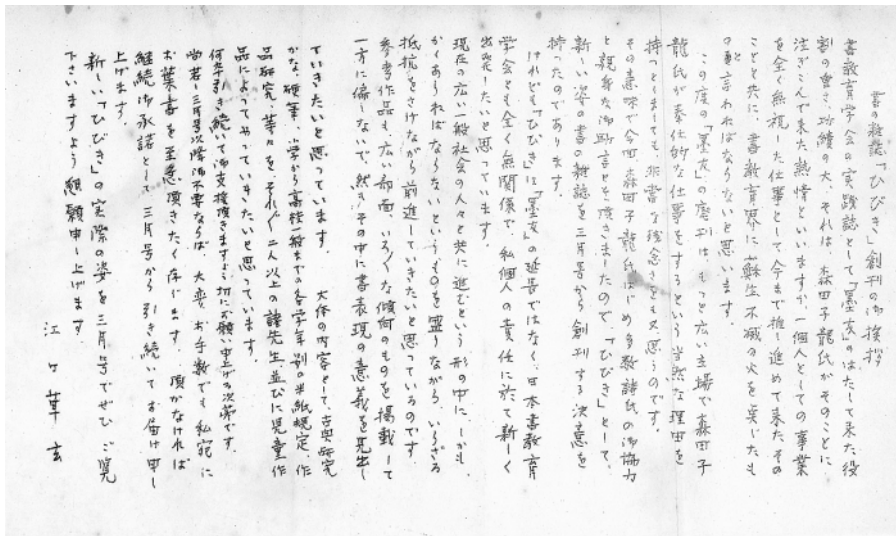 書の雑誌「ひびき」創刊の御挨拶
書教育学会の実践誌として「墨友」のはたして来た役
割の重き、功績の大、それは、森田子龍氏がそのことに
注ぎこんで来た熱情といいますか、一個人としての事業
を全く無視した仕事として今まで推し進めて来たその
ことと共に、書教育界に蘇生不滅の火を点じたも
のと言われねばならないと思います。
この度の「墨友」の廃刊は、もっと広い立場で森田子
龍氏が奉仕的な仕事をするという当然な理由を
持つとしましても、非常な残念さをも又思うのです。
その意味で今回、森田子龍氏はじめ多数諸氏の御協力
と親身な御助言とを頂きましたので、「ひびき」として、
新しい姿の書の雑誌を三月号から創刊する決意を
持ったのであります。
けれども「ひびき」は「墨友」の延長ではなく、日本書教育
学会とも全く無関係で、私個人の責任に於て新しく
出発したいと思っています。
現在の広い一般社会の人々と共に進むという形の中に、しかも、
かくあらねばならないというものを盛りながら、いらざる
抵抗をさけながら前進していきたいと思っているのです。
参考作品も広い部面、いろいろな傾向のものを掲載して
一方に偏しないで、然もその中に書表現の意義を見出し
ていきたいと思っています。 大体の内容として、古典研究
かな、硬筆、小学から高校一般までの各学年別の半紙規定、作
品研究、等々をそれぞれ二人以上の諸先生並びに児童作
品によってやっていきたいと思っています。
何卒引き続いて御支援頂きますよう、切にお願い申上げる次第です。
尚若し三月号以降御不要ならば、大変お手数でも私宛に
お葉書を至急頂きたく存じます。頂かなければ
継続御承諾として三月号から引き続いてお届け申し
上げます。
新しい「ひびき」の実際の姿を三月号でぜひご覧
下さいますよう懇願申し上げます。
江口草玄